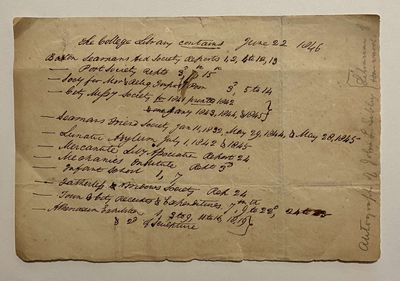 The College Library contains June 22 1846
Boston Seamans Aid Society Reports 1, 2, 4 to 10, 13
— Port Society Repts 3d 15th
— Socy for Mor & Relig Impt Poor 3, 5 to 14
— City Missy Society for 1841 printed 1842
& may 1843, 1844, & 1845
— Seamans Friend Society, Jan 11, 1832, May 29, 1844, & May 28, 1845
— Lunatic Asylum July 1, 1842 & 1845
— Mercantile Liby Association Report 24
— Mechanics Institute Rept 3d
— Infant School 1, 7
— Fatherless & Widows Society Rep. 24
— Town & City Receipts & Expenditures, 7th, 9 to 22d, 24 to
— Athenaeum Exhibition 1, 3 to 9, 11 to 16, 18, 19
& 2d of Sculpture
Autograph of John L. Sibley Librarian
Harvard